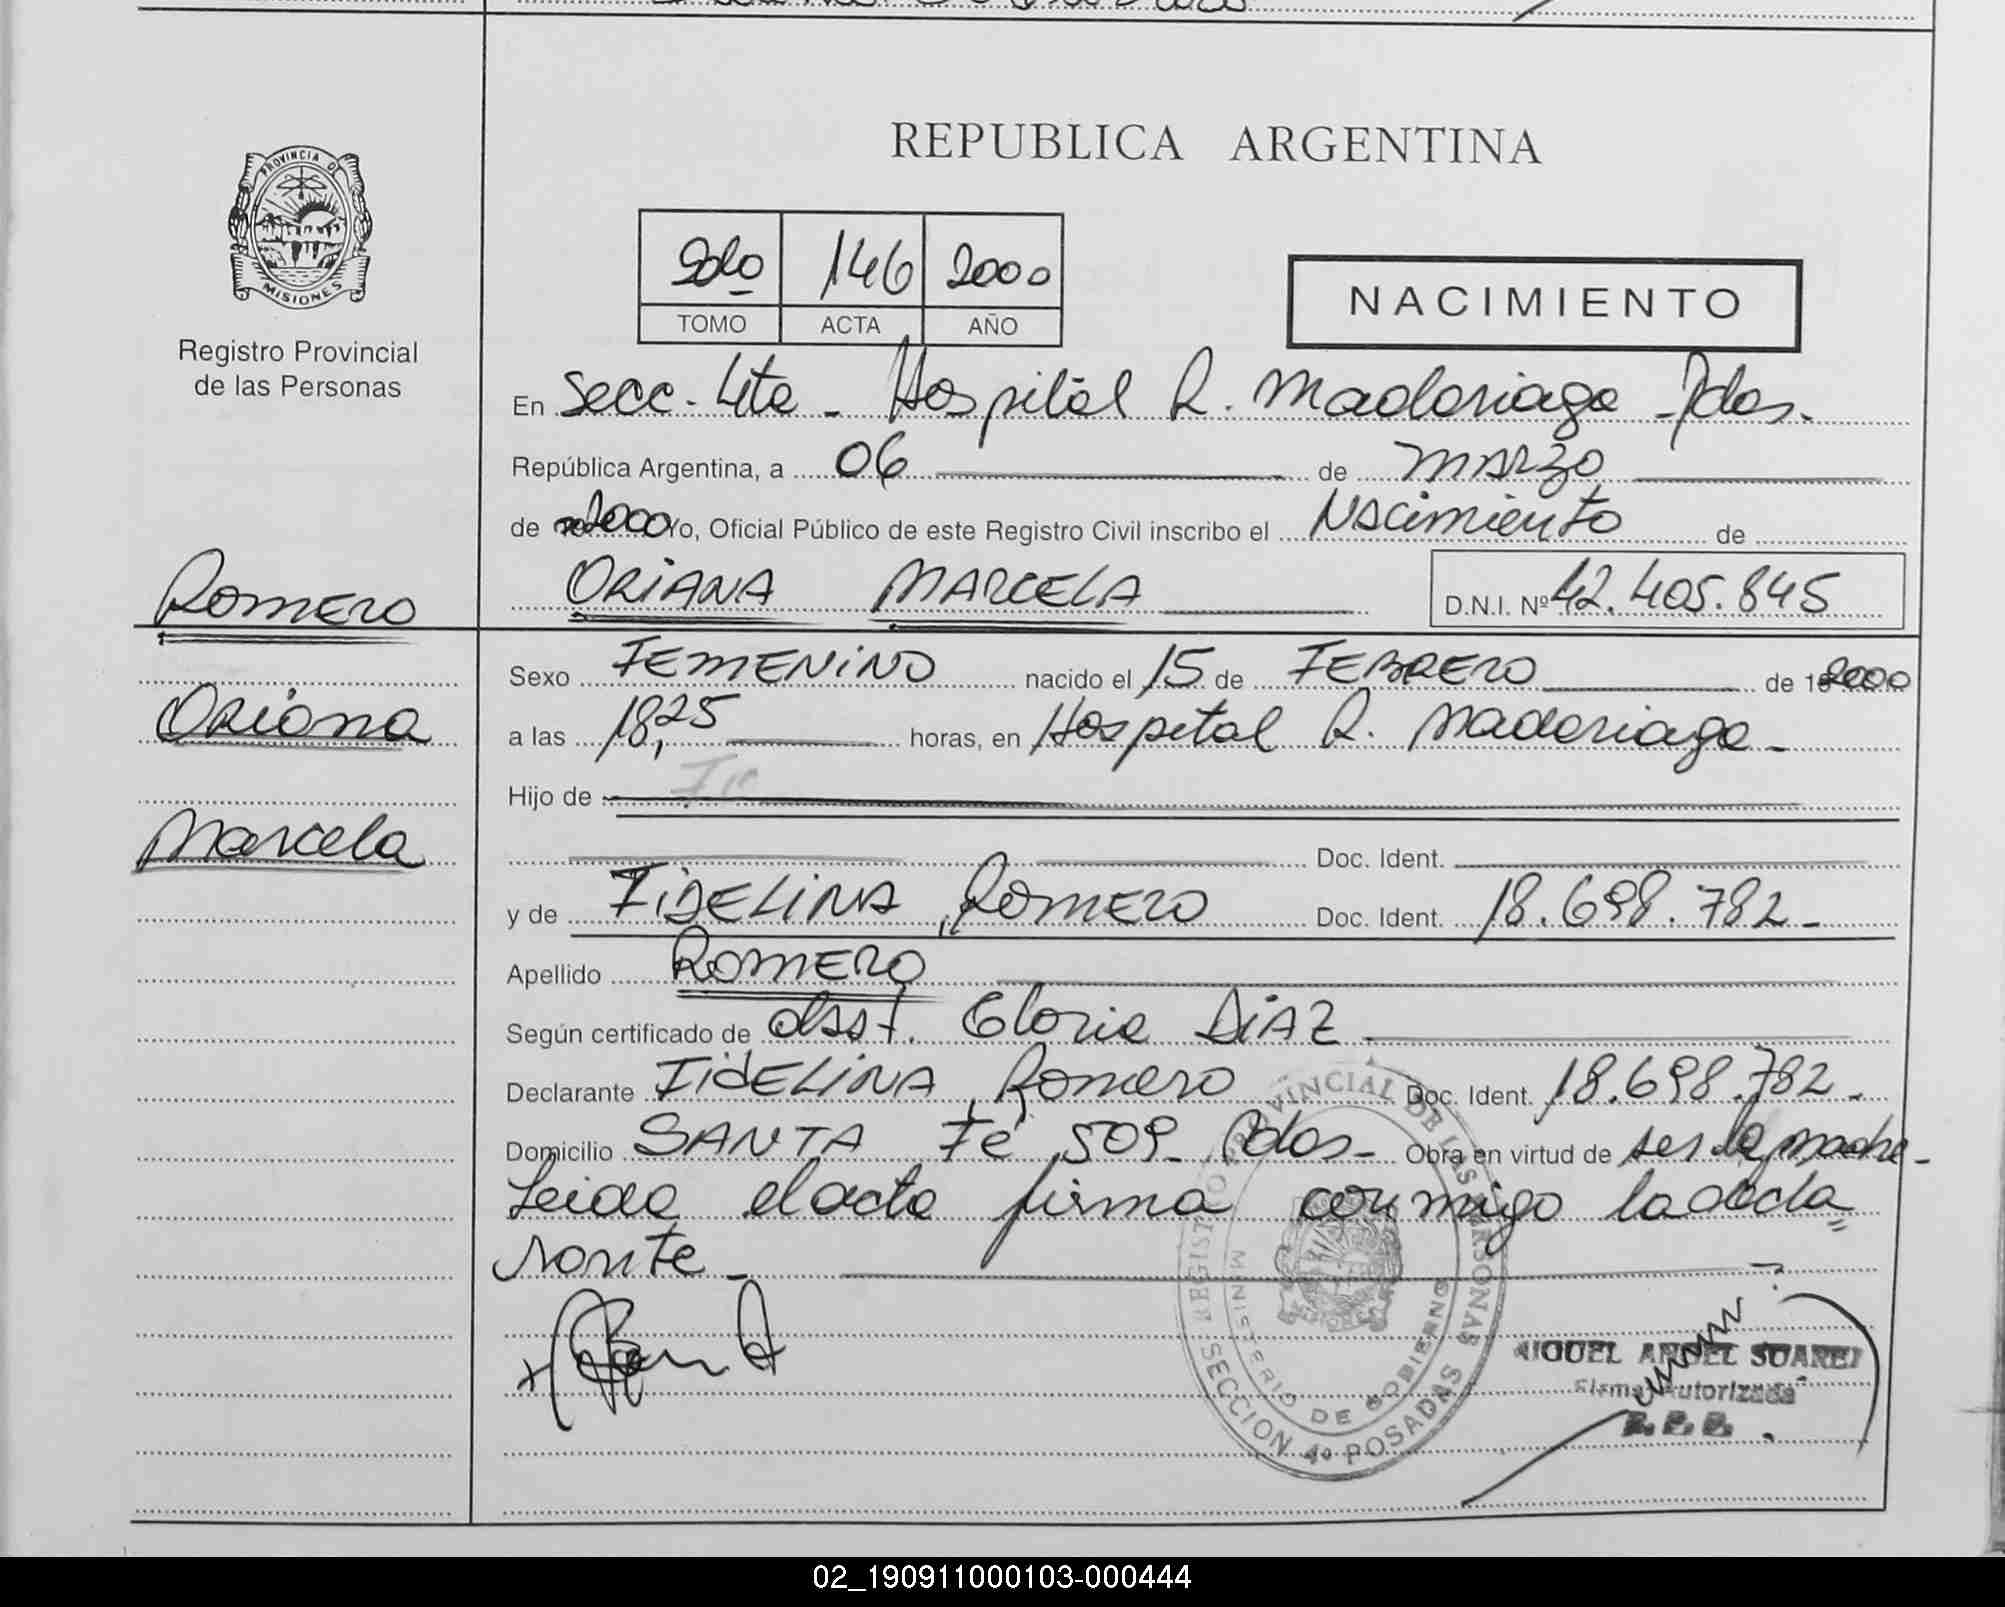 PROVINCIA DE
MISIONES
Registro Provincial
de las Personas
Romero
Oriana
Marcela
REPUBLICA ARGENTINA
146 2000
TOMO ACTA AÑO
NACIMIENTO
En Secc. 4ta - Hospital R. Madariaga - Pdas.
República Argentina, a 06 de MARZO
de 2000 Yo, Oficial Público de este Registro Civil inscribo el Nacimiento de
ORIANA MARCELA D.N.I. Nº 42.405.845
Sexo FEMENINO nacido el 15 de FEBRERO de 2000
a las 18,25 horas, en Hospital R. Madariaga -
Hijo de
Doc. Ident.
y de FIDELINA, ROMERO Doc. Ident. 18.698.782 -
Apellido ROMERO
Según certificado de obst. Gloria DIAZ
Declarante FIDELINA, Romero Doc. Ident. 18.698.782 -
Domicilio SANTA Fe 509 - Pdas - Obra en virtud de ser la madre -
Leida el acta firma conmigo la decla
rante -
REGISTRO PROVINCIAL DE LAS PERSONAS
MINISTERIO DE GOBIERNO
SECCION 4º POSADAS
MIGUEL ANGEL SUAREZ
Firma Autorizada
02_190911000103-000444